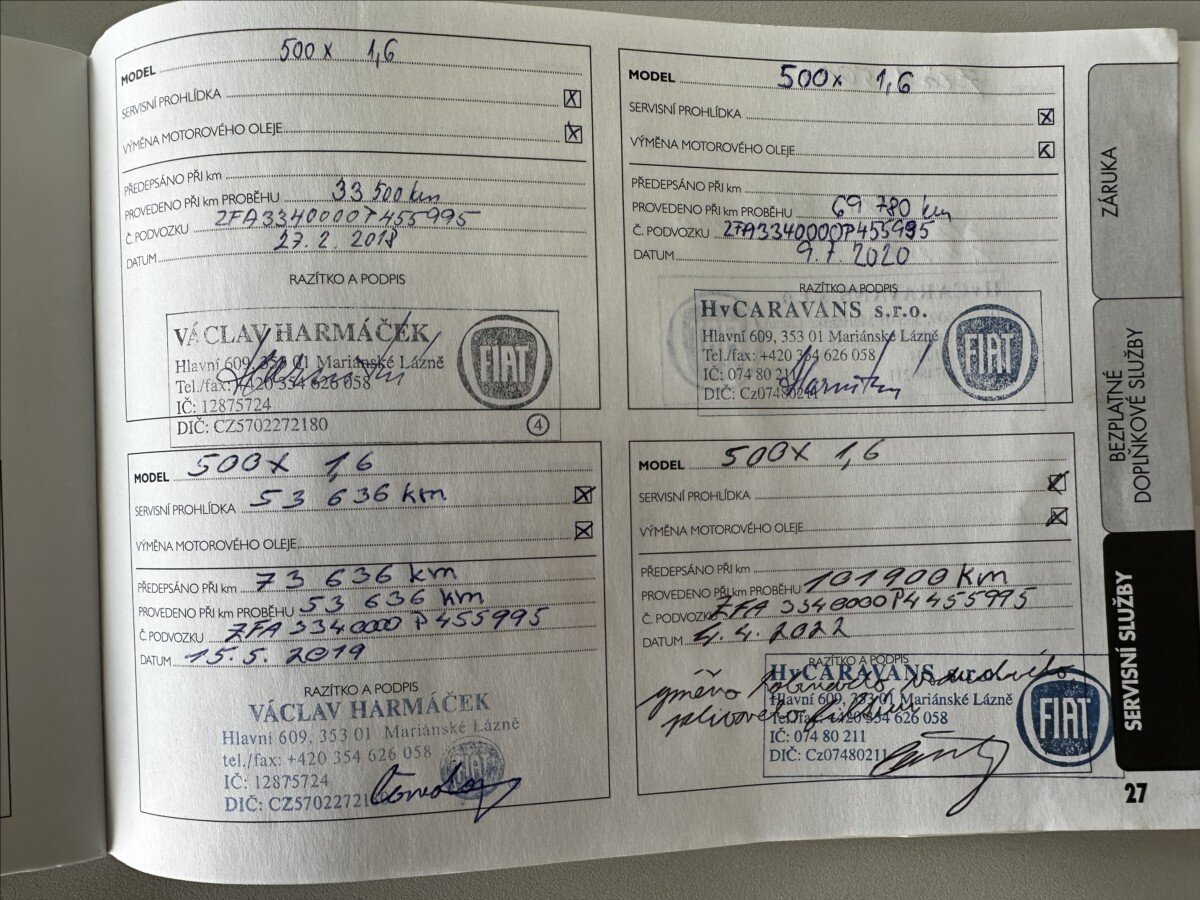 MODEL 500x 1,6
SERVISNÍ PROHLÍDKA X
VÝMĚNA MOTOROVÉHO OLEJE X
PŘEDEPSÁNO PŘI km
PROVEDENO PŘI km PROBĚHU 33 500 km
Č. PODVOZKU ZFA3340000P455995
DATUM 27. 2. 2018
RAZÍTKO A PODPIS
VÁCLAV HARMÁČEK
Hlavní 609, 353 01 Mariánské Lázně
Tel./fax: +420 354 626 058
IČ: 12875724
DIČ: CZ5702272180
FIAT
4
MODEL 500x 1,6
SERVISNÍ PROHLÍDKA X
VÝMĚNA MOTOROVÉHO OLEJE X
PŘEDEPSÁNO PŘI km
PROVEDENO PŘI km PROBĚHU 69 780 km
Č. PODVOZKU ZFA3340000P455995
DATUM 9.7. 2020
RAZÍTKO A PODPIS
HvCARAVANS s.r.o.
Hlavní 609, 353 01 Mariánské Lázně
Tel./fax: +420 354 626 058
IČ: 074 80 211
DIČ: Cz07480211
FIAT
MODEL 500X 1,6
SERVISNÍ PROHLÍDKA 53 636 km X
VÝMĚNA MOTOROVÉHO OLEJE X
PŘEDEPSÁNO PŘI km 73 636 km
PROVEDENO PŘI km PROBĚHU 53 636 km
Č. PODVOZKU ZFA 3340000 P455995
DATUM 15.5. 2019
RAZÍTKO A PODPIS
VÁCLAV HARMÁČEK
Hlavní 609, 353 01 Mariánské Lázně
tel./fax: +420 354 626 058
IČ: 12875724
DIČ: CZ5702272180
FIAT
MODEL 500X 1,6
SERVISNÍ PROHLÍDKA X
VÝMĚNA MOTOROVÉHO OLEJE X
PŘEDEPSÁNO PŘI km
PROVEDENO PŘI km PROBĚHU 101900 km
Č. PODVOZKU ZFA 3340000P4455995
DATUM 4.4. 2022
RAZÍTKO A PODPIS
HvCARAVANS s.r.o.
Hlavní 609, 353 01 Mariánské Lázně
Tel./fax: +420 354 626 058
IČ: 074 80 211
DIČ: Cz07480211
FIAT
palivového filtru
ZÁRUKA
BEZPLATNÉ
DOPLŇKOVÉ SLUŽBY
SERVISNÍ SLUŽBY
27